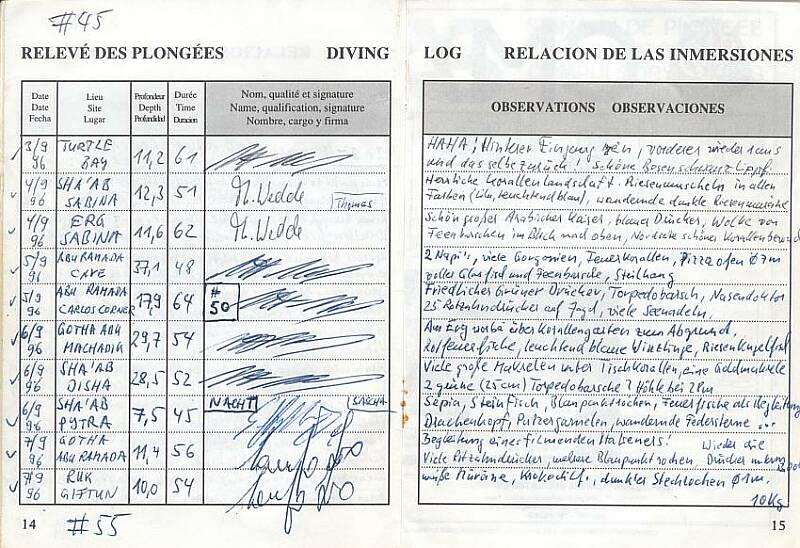 #45
RELEVÉ DES PLONGÉES DIVING
Date Date Fecha
Lieu Site Lugar
Profondeur Depth Profundidad
Durée Time Duracion
Nom, qualité et signature
Name, qualification, signature
Nombre, cargo y firma
3/9 96 TURTLE BAY 11,2 61
4/9 96 SHA'AB SABINA 12,3 51 M. Wedde Thomas
4/9 96 ERG SABINA 11,6 62 M. Wedde
5/9 96 ABU RAMADA CAVE 37,1 48
5/9 96 ABU RAMADA CARLOS CORNER 17,9 64 #50
6/9 96 GOTHA ABU 29,7 54
6/9 96 SHA'AB DISHA 28,5 52
6/9 96 SHA'AB 7,5 45 NACHT SASCHA
7/9 96 GOTHA ABU RAMADA 11,4 56
7/9 96 RUK GIFTUN 10,0 54
14 #55
LOG RELACION DE LAS INMERSIONES
OBSERVATIONS OBSERVACIONES
Hinterer Eingang rein, vorderer wieder raus
und das selbe zurück, Schöne
Herrliche Korallenlandschaft. Riesenmuscheln in allen
Farben (lila, leuchtend blau), wandernde dunkle
Schön großer Arabischer Kaiser, blauer Drücker, Wolke von
Feenbarschen im Blick nach oben, Nordseite schöner
2 Napi's, viele Gorgonien, Feuerkorallen, Pizzaofen Ø 7m
voller Glasfisch und Feenbarsche, Steilhang
Friedlicher Grüner Drücker, Torpedobarsch, Nasendoktor
25 Rotzahndrücker auf Jagd, viele Seenadeln.
Am Erg vorbei über Korallengarten zum Abgrund.
Rotfeuerfische, leuchtend blaue Winzlinge, Riesenkugelfisch
Viele große Makrelen unter Tischkorallen, eine Goldmakrele
2 grüne (25cm) Torpedobarsche? Höhle bei 28m
Sepia, Steinfisch, Blaupunktrochen, Feuerfische als Begleitung
Drachenkopf, Putzergarnelen, wandernde Federsterne ...
Begleitung eines filmenden Habeners! Wieder die
Viele Rotzahndrücker, mehrere Blaupunktrochen, Drücker
weiße Muräne, Krokodilf., dunkler Stechrochen Ø 1m.
10 Kg
15